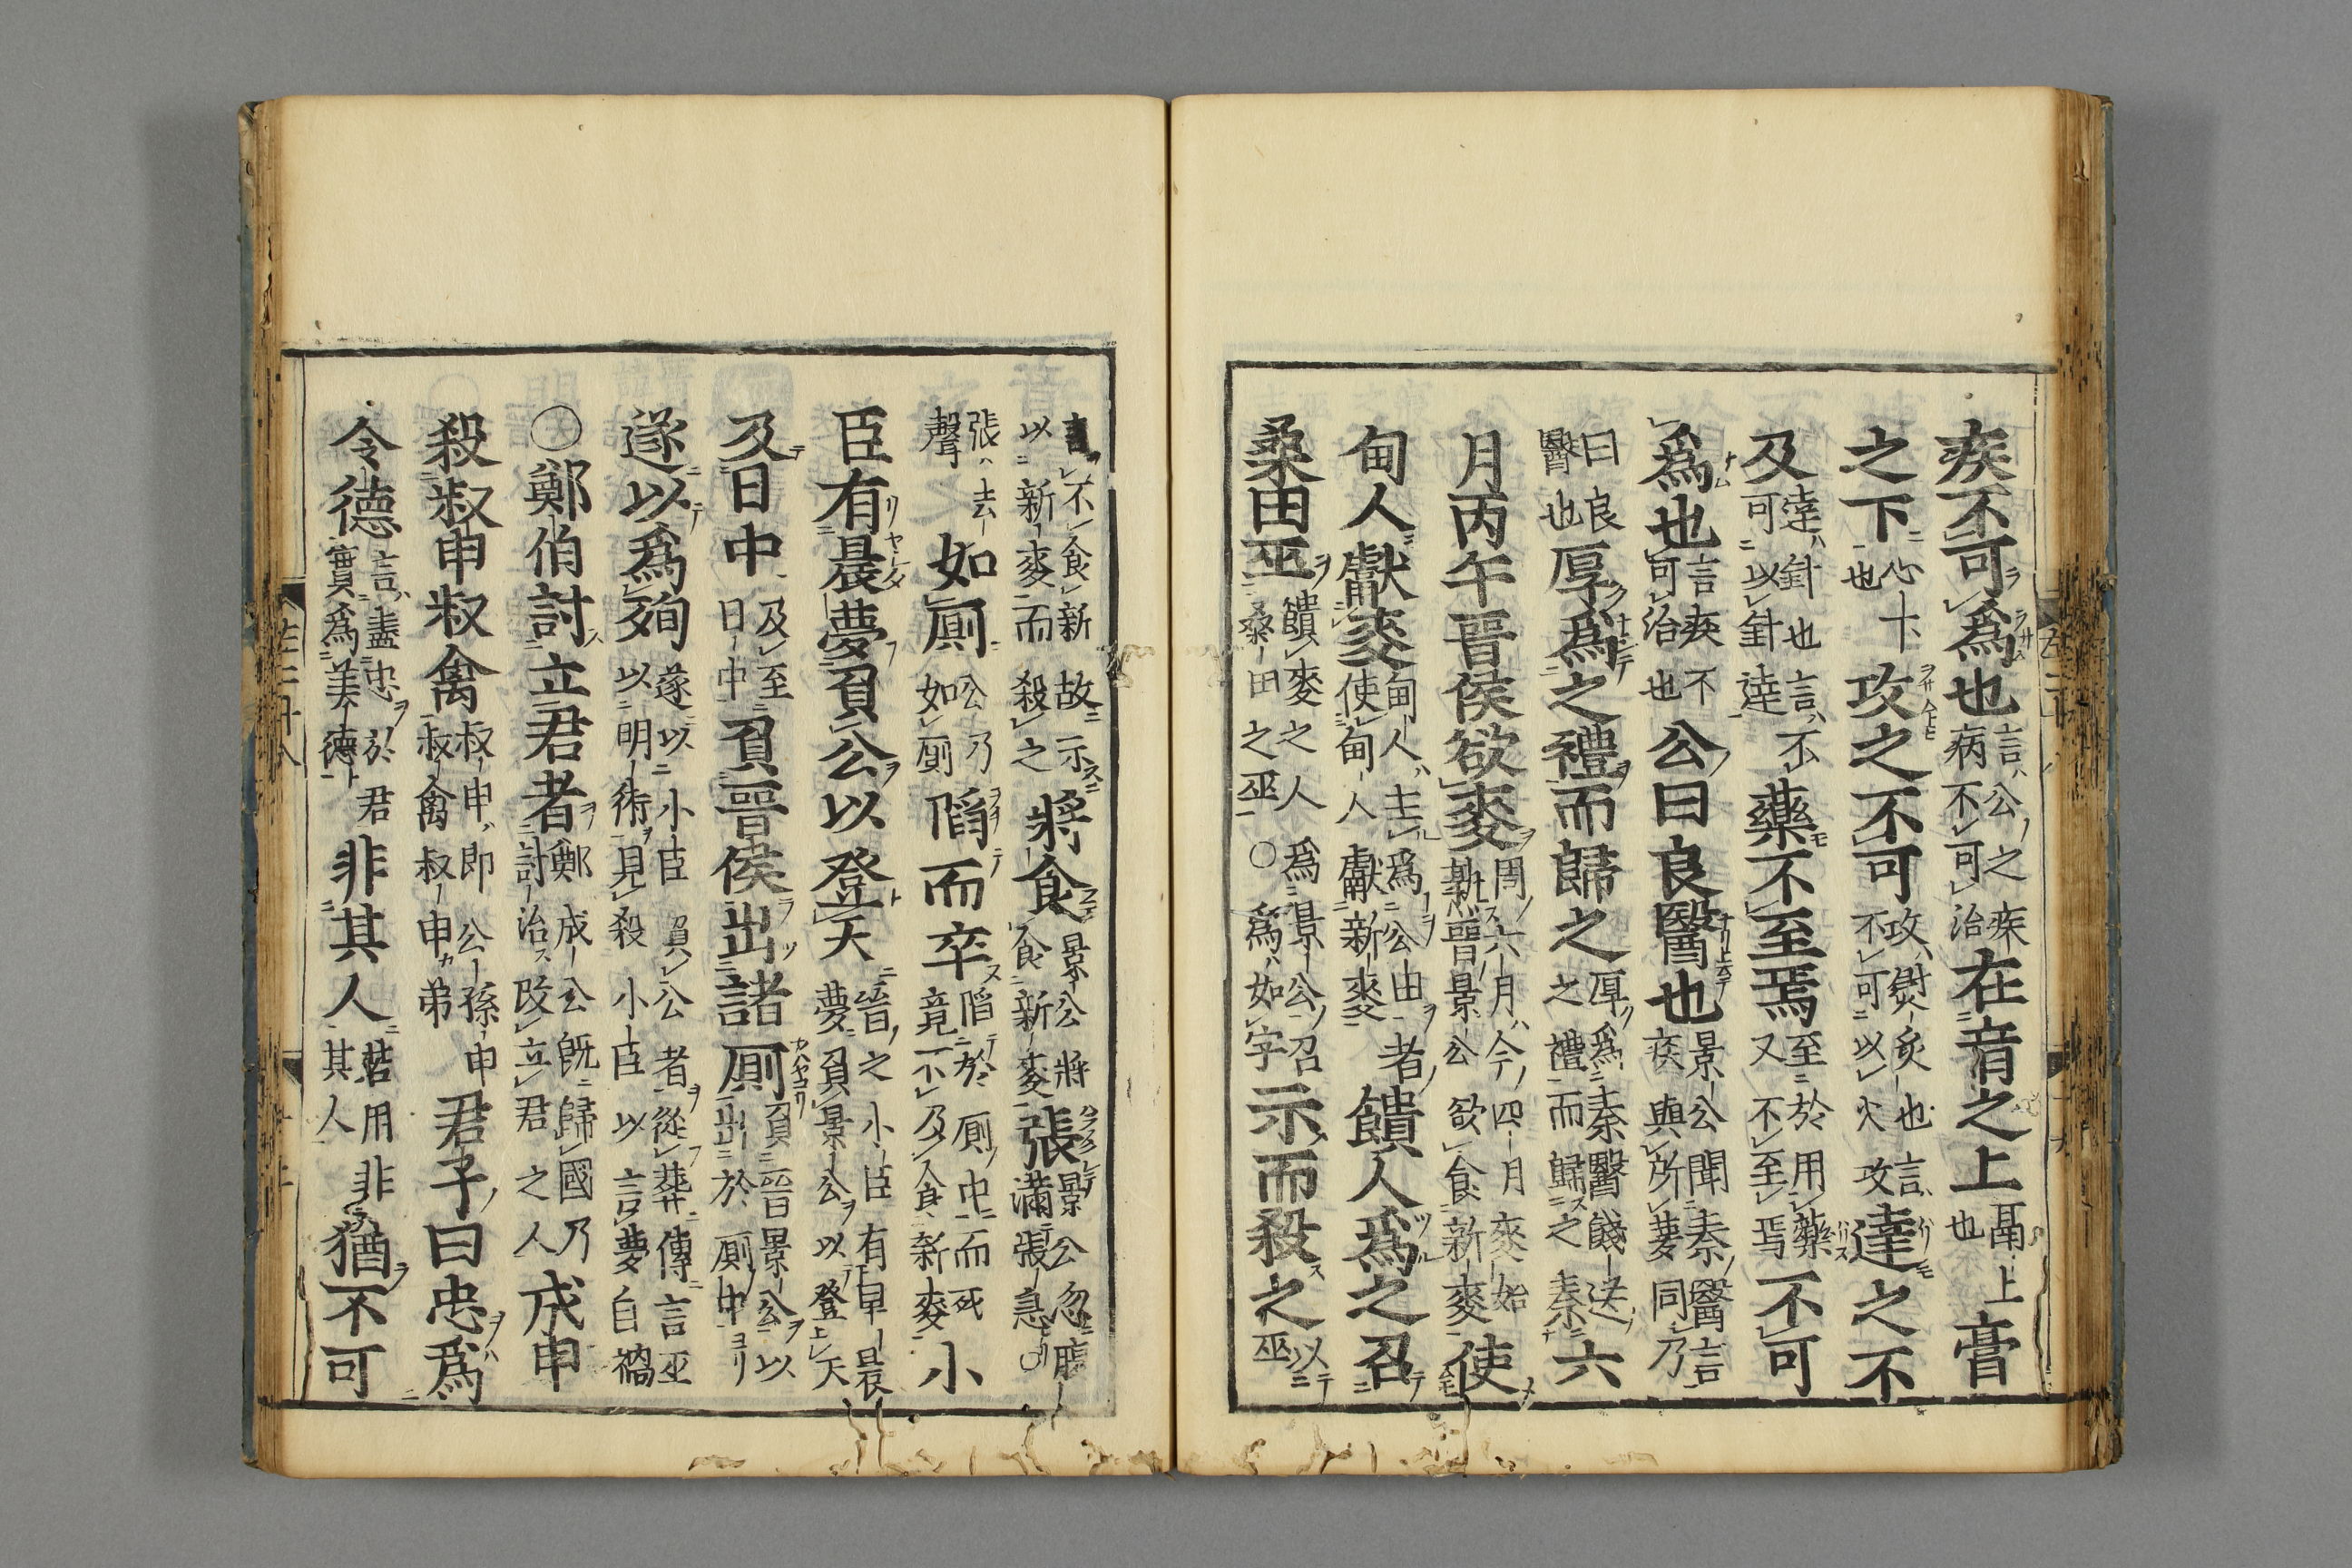 疾不可爲也言公之疾病不可治在肓之上鬲上也膏
之下心下也攻之不可攻熨灸也言不可以火攻達之不
及達針也言不可以針達藥不至焉至於用藥又不至焉不可
爲也言疾不可治也公曰良醫也景公聞秦醫言疾與所夢同乃
曰良醫也厚爲之禮而歸之厚爲秦醫餞送之禮而歸之秦六
月丙午晉侯欲麥周六月今四月麥始熟晉景公欲食新麥使
甸人獻麥甸人主爲公田者使甸人獻新麥饋人爲之召
桑田巫饋麥之人爲景公召桑田之巫○爲如字示而殺之以巫
言不食新故示以新麥而殺之將食景公將食新麥張景公忽脹滿張急○
張去聲如厠公乃如厠陷而卒陷於厠中而死竟不及食新麥小
臣有晨夢負公以登天晉之小臣有早晨夢負景公以登上天
及日中及至日中負晉侯出諸厠負晉景公以出於厠中
遂以爲殉遂以小臣負公者從葬傳言巫以明術見殺小臣以言夢自禍
○鄭伯討立君者鄭成公既歸國乃討治改立君之人戊申
殺叔申叔禽叔申即公孫申叔禽叔申弟君子曰忠爲
令德言盡忠於君實爲美德非其人若用非其人猶不可